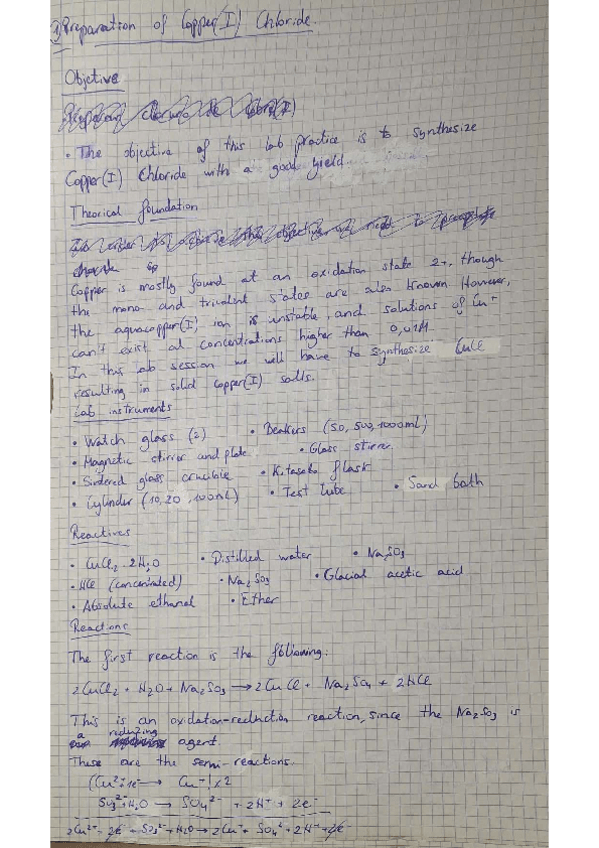 1) Preparation of Copper(I) Chloride.
Objective
• The objective of this lab practice is to synthesize
Copper(I) Chloride with a good yield
Theorical foundation
Copper is mostly found at an oxidation state 2+, though
the mono and trivalent states are also known. However,
the aquocopper(I) ion is unstable, and solutions of Cu+
can't exist at concentrations higher than 0,01M.
In this lab session we will have to synthesize CuCl
resulting in solid Copper(I) salts.
Lab instruments
• Watch glass (2) • Beakers (50, 500, 1000ml)
• Magnetic stirrer and plate • Glass stirrer
• Sintered glass crucible • Kitasato flask
• Cylinder (10, 20, 100mL) • Test tube • Sand bath
Reactives
• CuCl2·2H2O • Distilled water • Na2SO3
• HCl (concentrated) • Na2SO3 • Glacial acetic acid
• Absolute ethanol • Ether
Reactions
The first reaction is the following:
2CuCl2 + H2O + Na2SO3 → 2CuCl + Na2SO4 + 2HCl
This is an oxidation-reduction reaction, since the Na2SO3 is
a reduzing agent.
These are the semi-reactions.
(Cu2+ + 1e- → Cu+) x2
SO3^2- + H2O → SO4^2- + 2H+ + 2e-
2Cu2+ + 2e- + SO3^2- + H2O → 2Cu+ + SO4^2- + 2H+ + 2e-